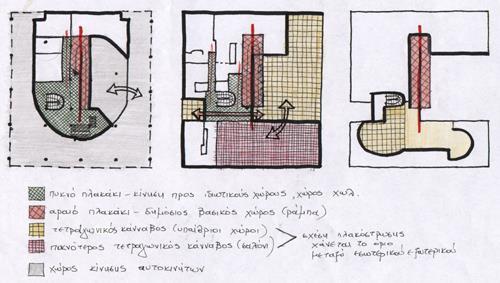 πυκνό πλακάκι - κίνηση προς ιδιωτικούς χώρους, χώρος χωλ.
αραιό πλακάκι - δημόσιος βασικός χώρος (ράμπα)
τετραγωνικός κάνναβος (υπαίθριοι χώροι)
πυκνότερος τετραγωνικός κάνναβος (σαλόνι)
σχέση πλακόστρωσης
χάνεται το όριο
μεταξύ εσωτερικού-εξωτερικού
χώρος κίνησης αυτοκινήτων